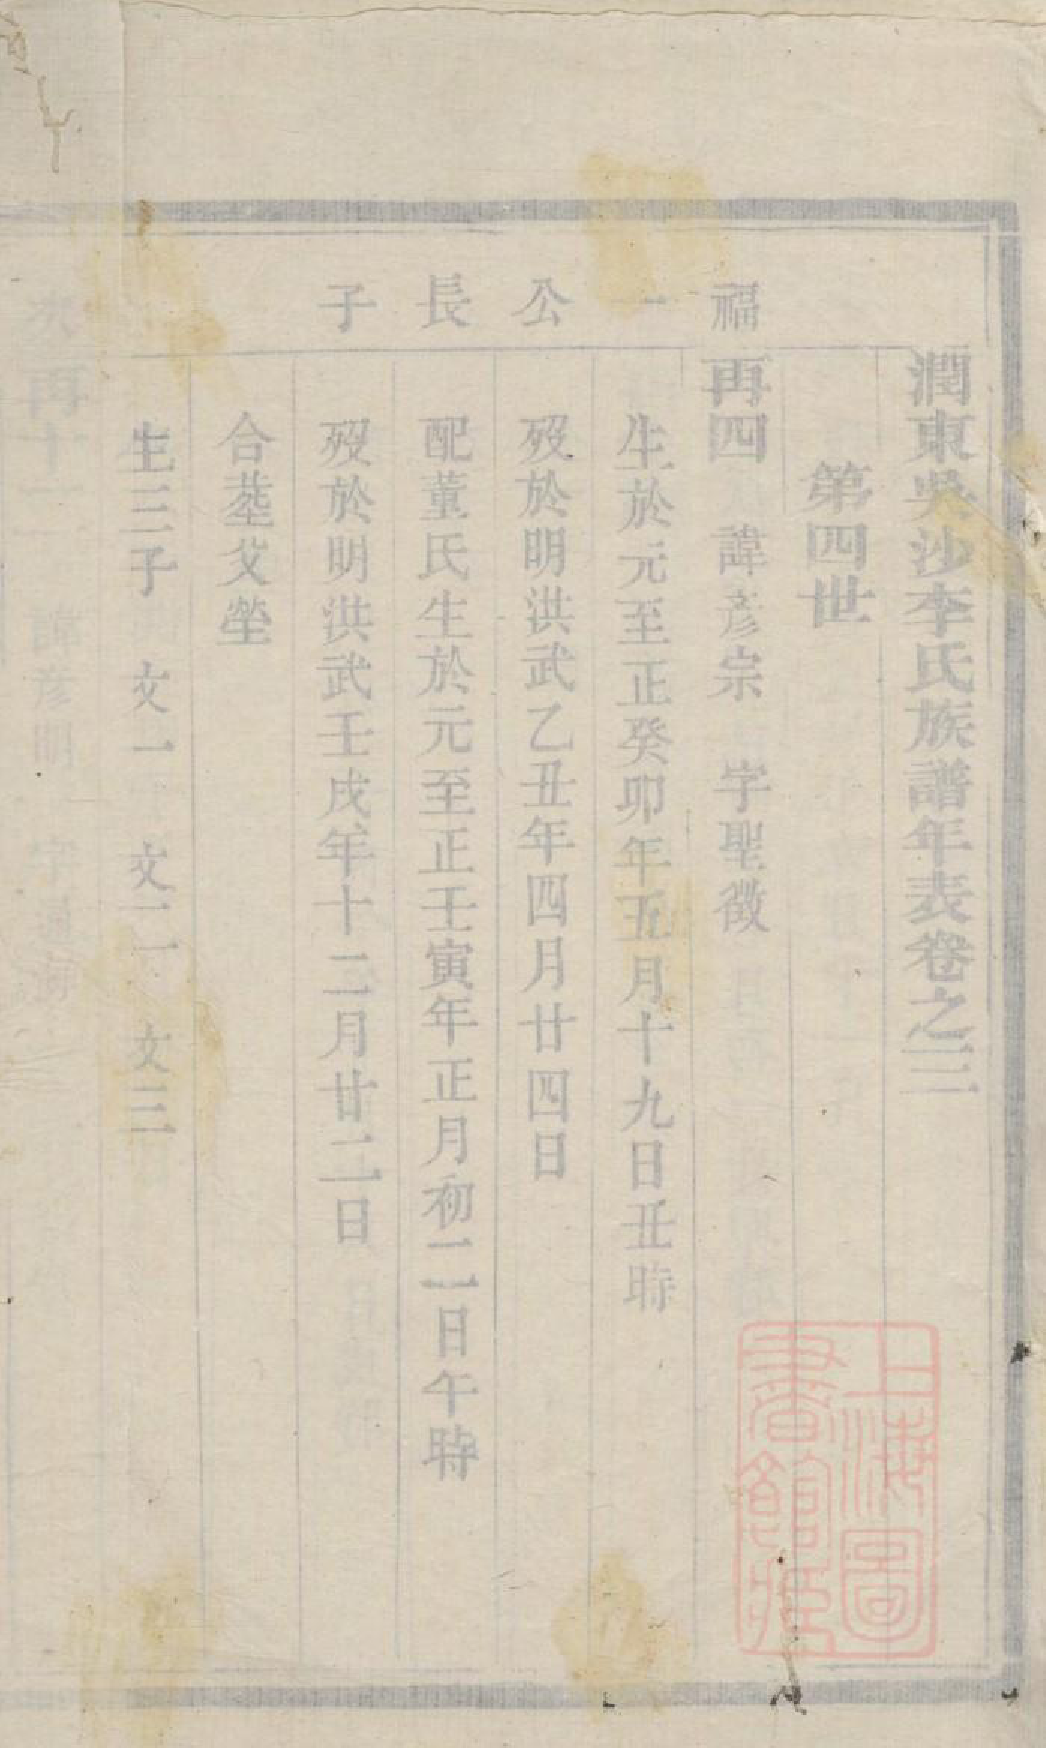 潤東吳沙李氏族譜年表卷之三
第四世
福一公長子
再四 諱彥宗 字聖徵
生於元至正癸卯年五月十九日丑時
歿於明洪武乙丑年四月廿四日
配董氏生於元至正壬寅年正月初二日午時
歿於明洪武壬戌年十二月廿二日
合塟父塋
生三子 文一 文二 文三
次
再十一 諱彥明 字
上海圖
書館藏